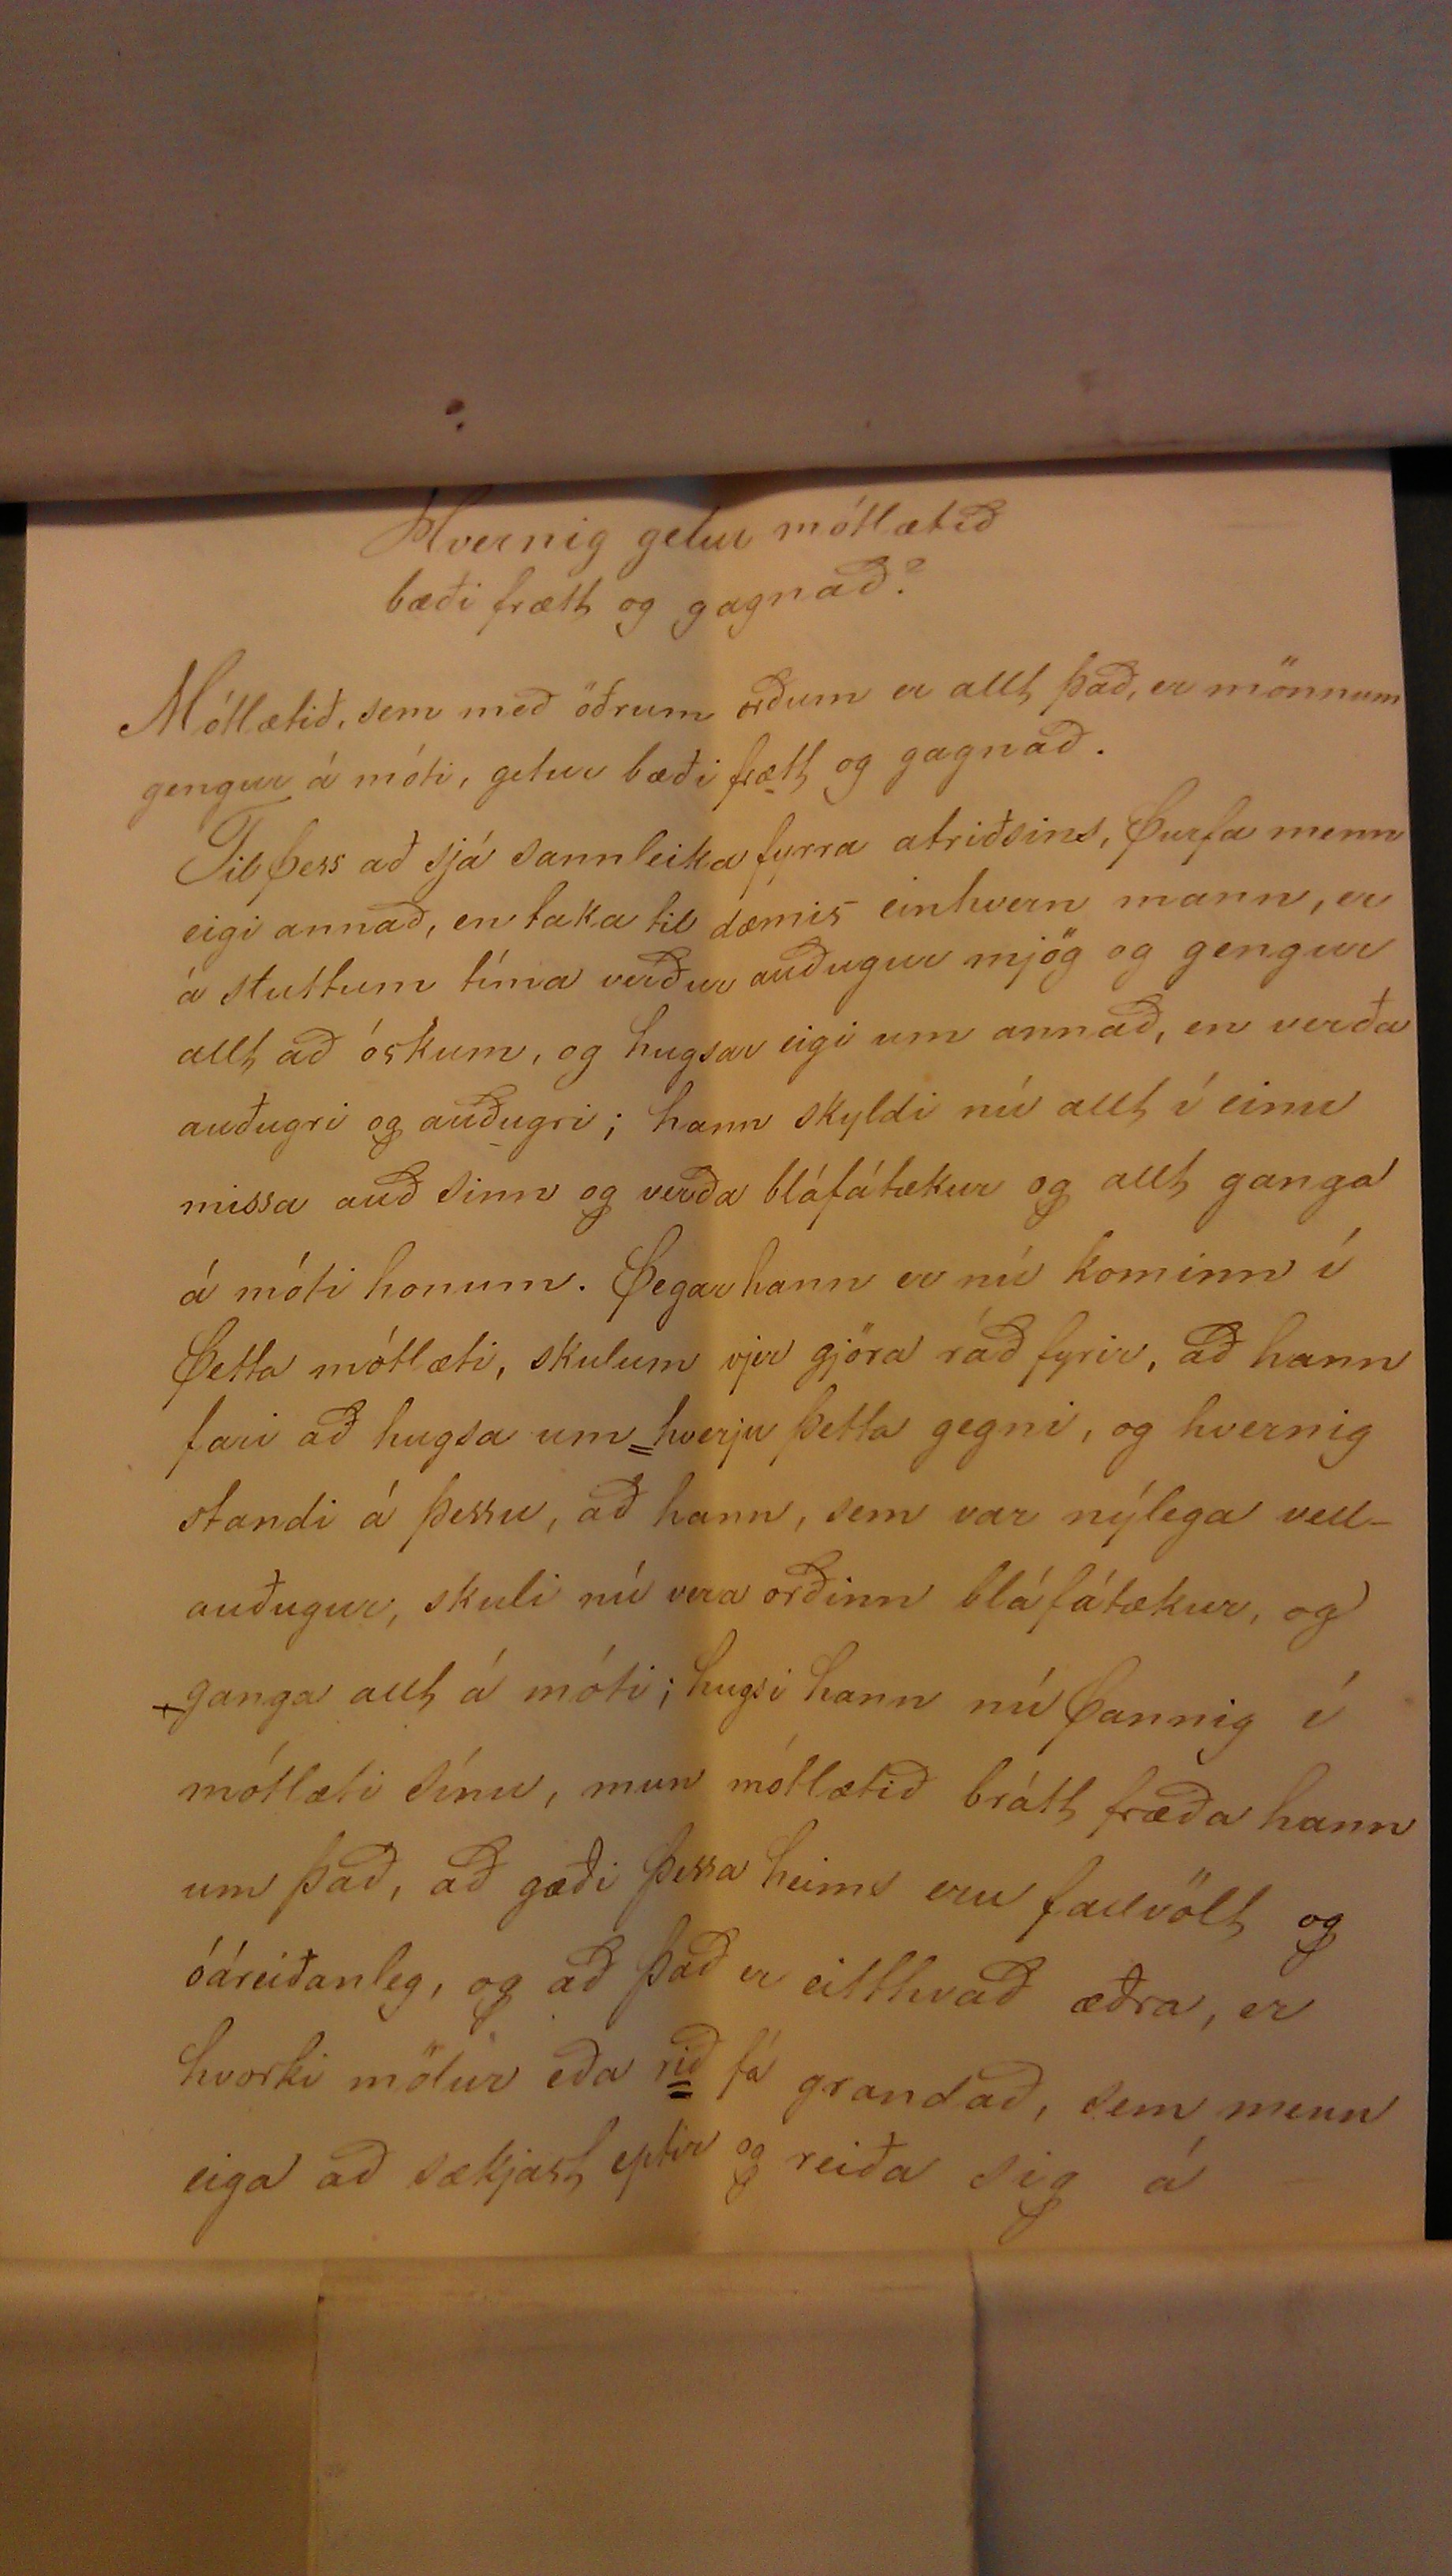 Hvernig getur mótlætið
bæði frætt og gagnað?
Mótlætið, sem með öðrum orðum er allt það, er mönnum
gengur á móti, getur bæði frætt og gagnað.
Til þess að sjá sannleika fyrra atriðsins, þurfa menn
eigi annað, en taka til dæmis einhvern mann, er
á stuttum tíma verður auðugur mjög og gengur
allt að óskum, og hugsar eigi um annað, en verða
auðugri og auðugri; hann skyldi nú allt í einu
missa auð sinn og verða bláfátækur og allt ganga
á móti honum. Þegar hann er nú kominn í
þetta mótlæti, skulum vjer gjöra ráð fyrir, að hann
fari að hugsa um hverju þetta gegni, og hvernig
standi á þessu, að hann, sem var nýlega vell-
auðugur, skuli nú vera orðinn bláfátækur, og
ganga allt á móti; hugsi hann nú þannig í
mótlæti sínu, mun mótlætið brátt fræða hann
um það, að gæði þessa heims eru fallvölt og
óáreiðanleg, og að það er eitthvað æðra, er
hvorki mölur eða rið fá grandað, sem menn
eiga að sækjast eptir og reiða sig á